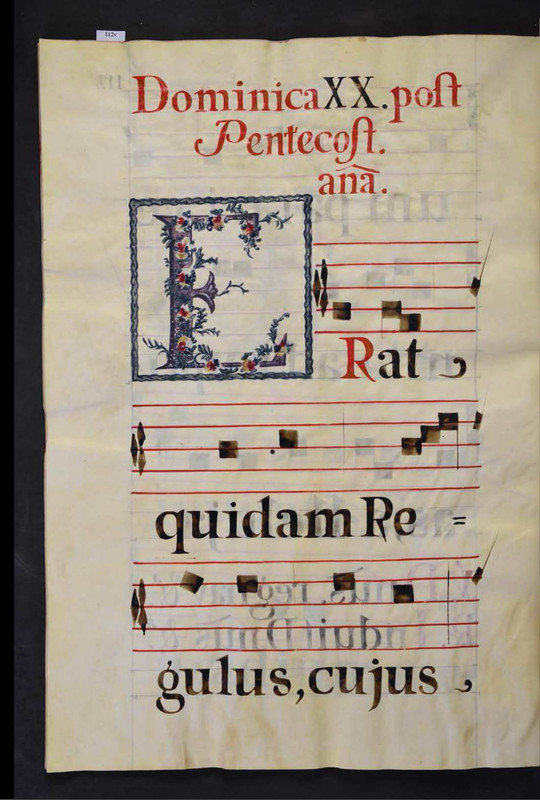 112v
Dominica XX. post
Pentecost.
anã.
ERat
quidam Re =
gulus, cujus